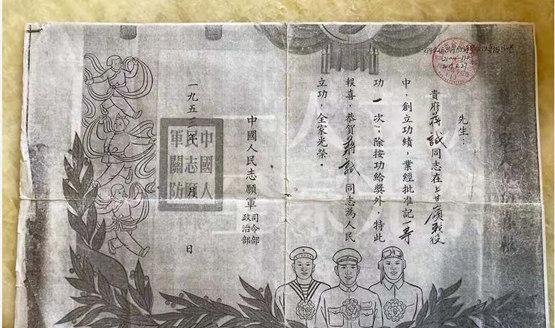 先生：
貴府蔣誠同志在上甘嶺戰役
中，創立功績，業經批准記一等
功一次；除按功給獎外，特此
報喜，恭賀蔣誠同志為人民
立功，全家光榮。
中國人民志願軍 司令部 政治部
一九五 年 月 日
中國人
民志願
軍關防